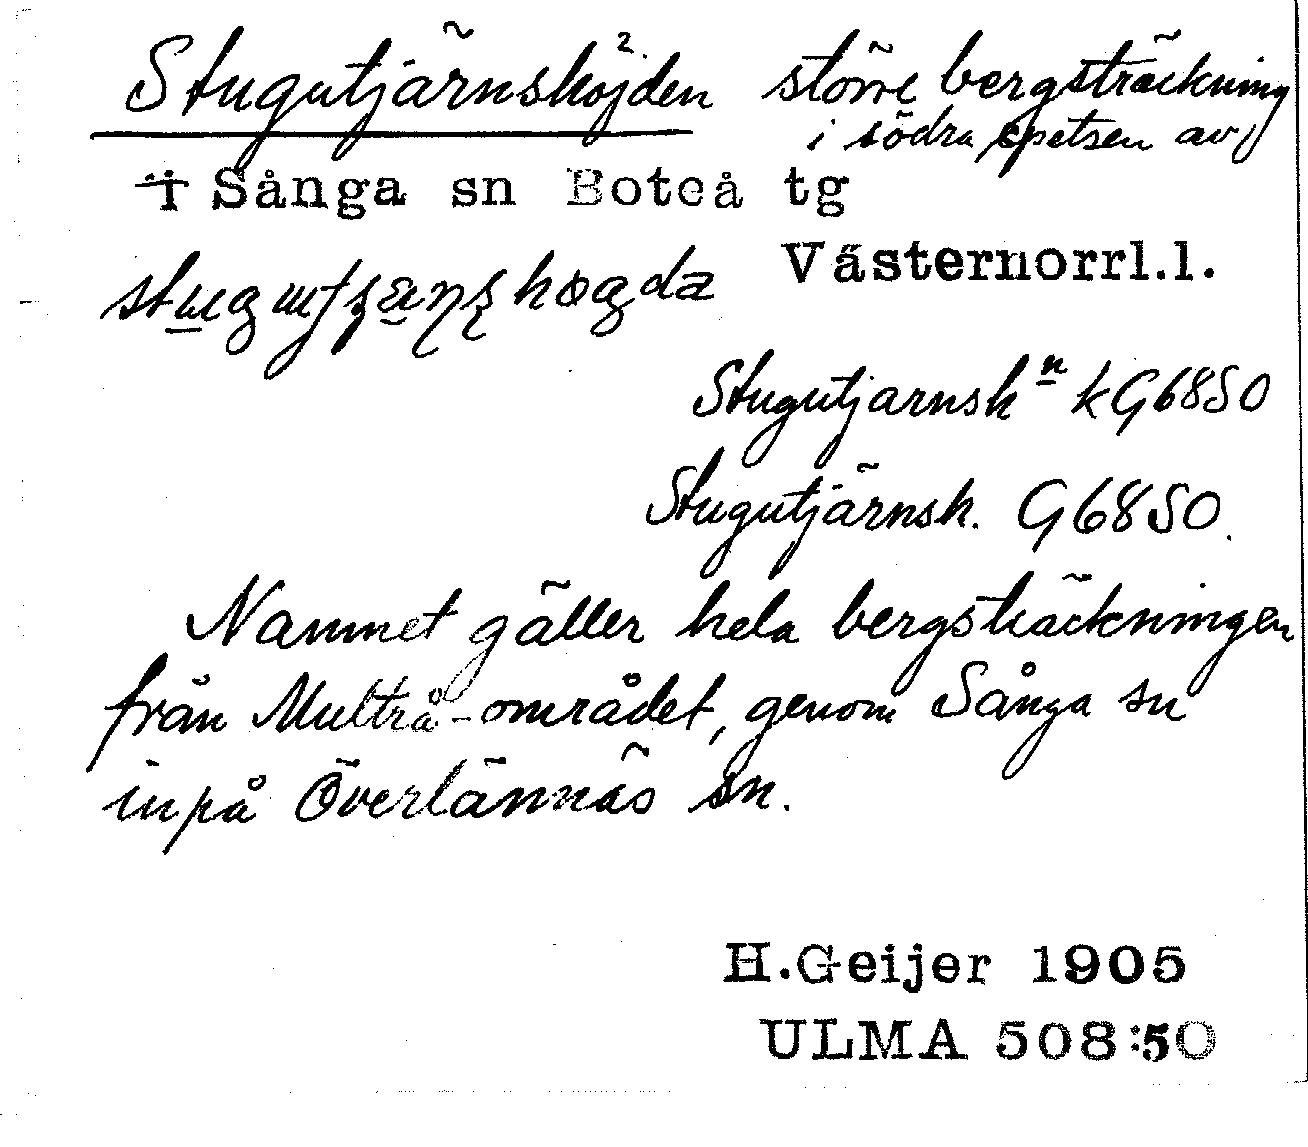 Stugutjärnshöjden² större bergsträckning
i södra spetsen av
i Sånga sn Boteå tg
Västernorrl.l.
Stugutjarnshⁿ kG68SO
Stugutjärnsh. G68SO.
Namnet gäller hela bergsträckningen
från Multrå-området, genom Sånga sn
inpå Överlännäs sn.
H.Geijer 1905
ULMA 508:50